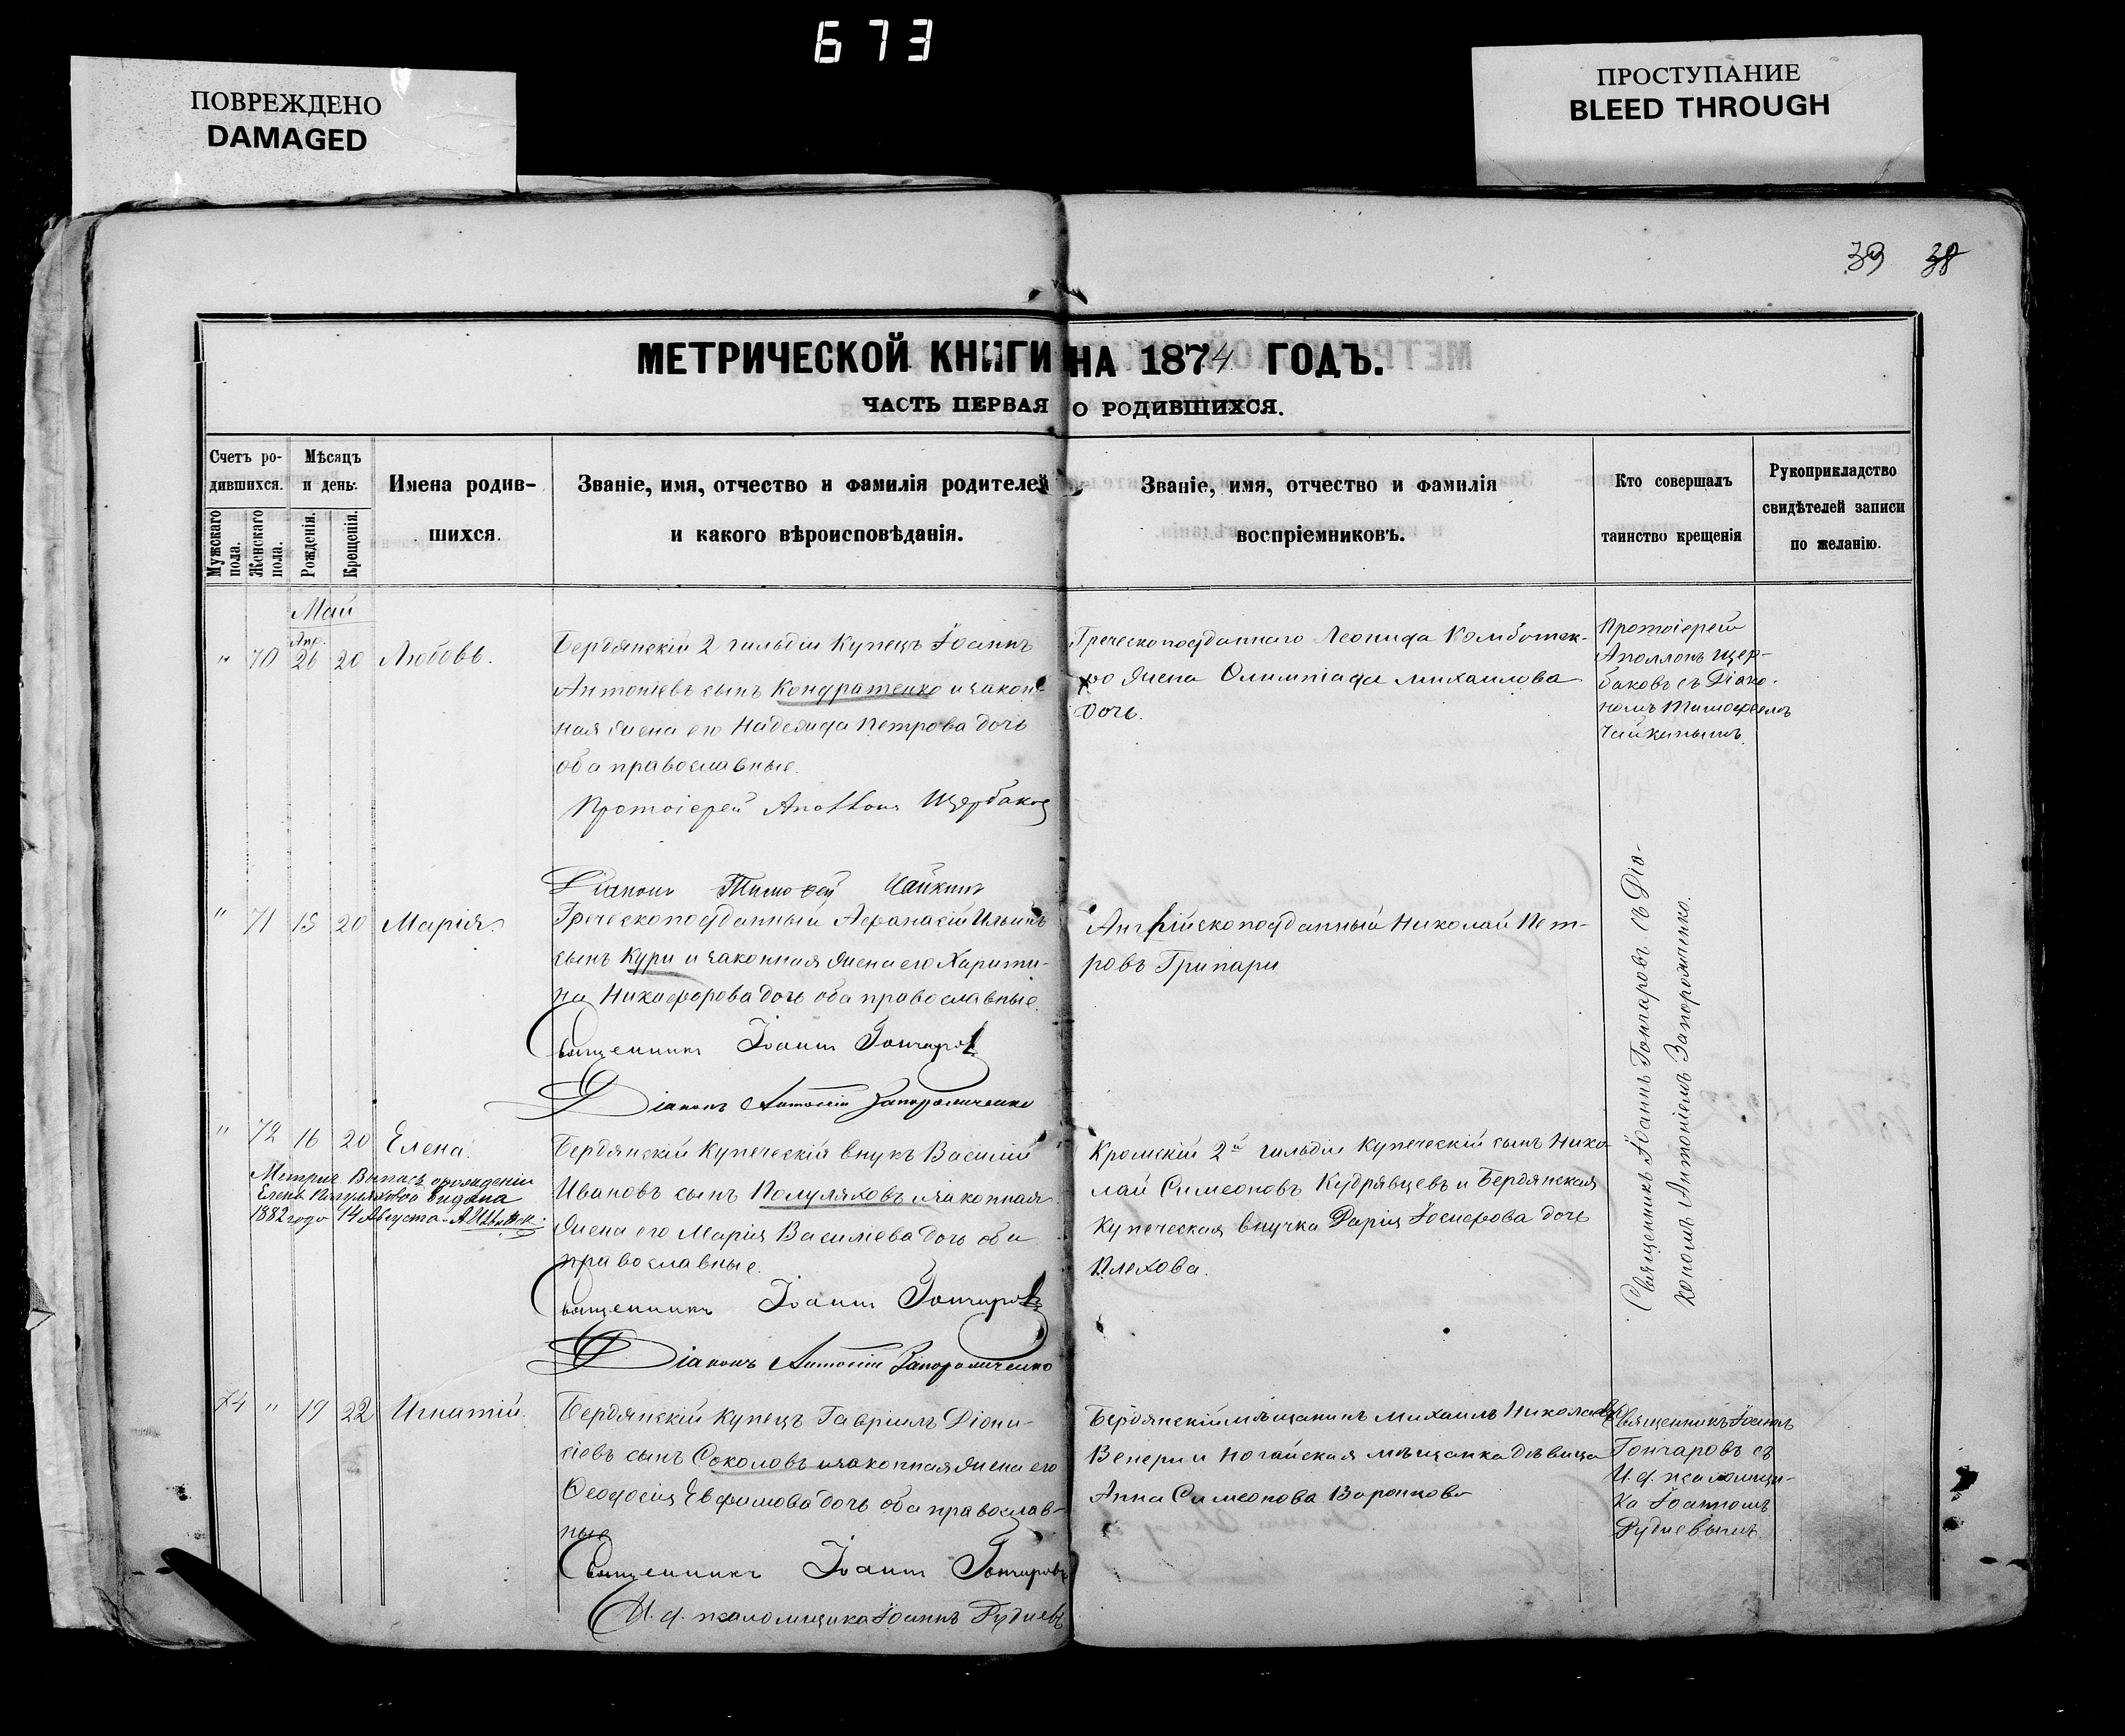 673
ПОВРЕЖДЕНО
DAMAGED
ПРОСТУПАНИЕ
BLEED THROUGH
39 38
МЕТРИЧЕСКОЙ КНИГИ НА 1874 ГОДЪ.
ЧАСТЬ ПЕРВАЯ О РОДИВШИХСЯ.
Счетъ ро-
дившихся.
Мужскаго пола.
Женскаго пола.
Мѣсяцъ
и день.
Рожденія.
Крещенія.
Имена родив-
шихся.
Званіе, имя, отчество и фамилія родителей
и какого вѣроисповѣданія.
Званіе, имя, отчество и фамилія
воспріемниковъ.
Кто совершалъ
таинство крещенія
Рукоприкладство
свидѣтелей записи
по желанію.
Май
Апр.
" 70 26 20 Любовь.
Бердянскій 2 гильдіи купецъ Іоаннъ
Антоніевъ сынъ Кондратенко и закон-
ная жена его Надежда Петрова дочь
оба православные.
Протоіерей Аполлонъ Щербаковъ
Діаконъ Тимофей Чайкинъ
Греческоподданнаго Леонида
жена Олимпіада Михаилова
дочь.
Протоіерей
Аполлонъ Щер-
баковъ съ Діако-
номъ Тимофеемъ
Чайкинымъ.
" 71 15 20 Марія.
Греческоподданный Афанасій Ильинъ
сынъ Кури и законная жена его Харити-
на Никифорова дочь оба православные.
Священникъ Іоаннъ Гончаровъ
Діаконъ Антоній Запорожченко
Англійскоподданный Николай Пет-
ровъ Грипари
Священникъ Іоаннъ Гончаровъ съ Діа-
кономъ Антоніемъ Запорожченко.
" 72 16 20 Елена.
Метрич. Выпись о рожденіи
Елены Полуляховой выдана
1882 года 14 Августа.
Бердянскій купеческій внукъ Василій
Ивановъ сынъ Полуляховъ и законная
жена его Марія Василіева дочь оба
православные.
Священникъ Іоаннъ Гончаровъ
Діаконъ Антоній Запорожченко
Кромскій 2й гильдіи купеческій сынъ Нико-
лай Симеоновъ Кудрявцевъ и Бердянская
купеческая внучка Дарія Іосифова дочь
Плехова.
74 " 19 22 Игнатій.
Бердянскій купецъ Гавріилъ Діони-
сіевъ сынъ Соколовъ и законная жена его
Феодосія Евфимова дочь оба православ-
ные
Священникъ Іоаннъ Гончаровъ
И. д. псаломщика Іоаннъ Рудневъ
Бердянскій мѣщанинъ Михаилъ Николаевъ
Венери и Ногайская мѣщанка дѣвица
Анна Симеонова Воронкова
Священникъ Іоаннъ
Гончаровъ съ
И. д. псаломщи-
ка Іоанномъ
Рудневымъ.